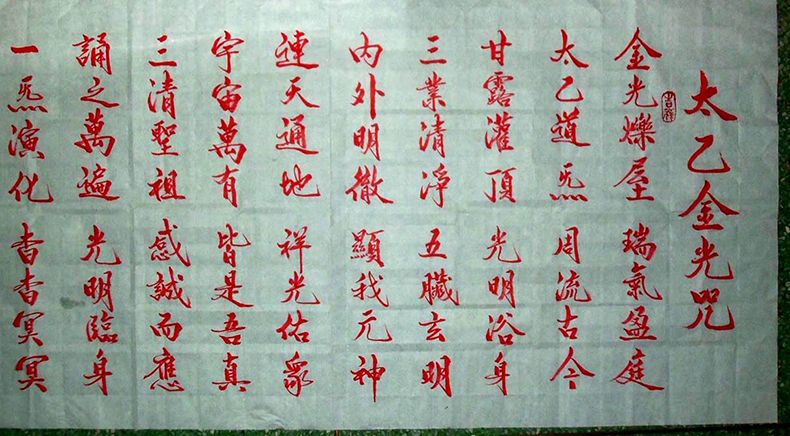 太乙金光咒
吉祥
金光爍屋 瑞氣盈庭
太乙道炁 周流古今
甘露灌頂 光明浴身
三業清淨 五臟玄明
内外明徹 顯我元神
連天通地 祥光佑眾
宇宙萬有 皆是吾真
三清聖祖 感誠而應
誦之萬遍 光明臨身
一炁演化 杳杳冥冥